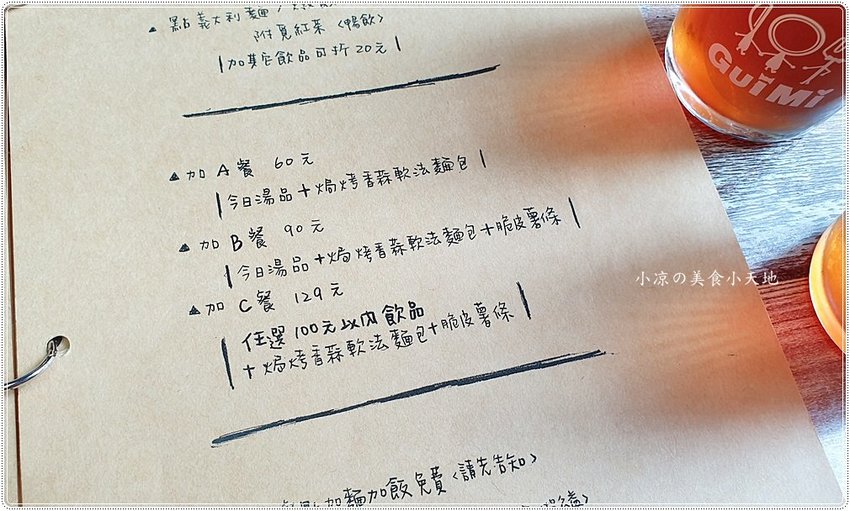 ▲ 點義大利麵/
附覓紅茶〈暢飲〉
|加其它飲品可折20元|
▲加A餐 60元
|今日湯品+焗烤香蒜軟法麵包|
▲加B餐 90元
|今日湯品+焗烤香蒜軟法麵包+脆皮薯條|
▲加C餐 129元
任選100元以內飲品
+焗烤香蒜軟法麵包+脆皮薯條
加麵加飯免費〈請先告知〉
GuiMi
小涼の美食小天地